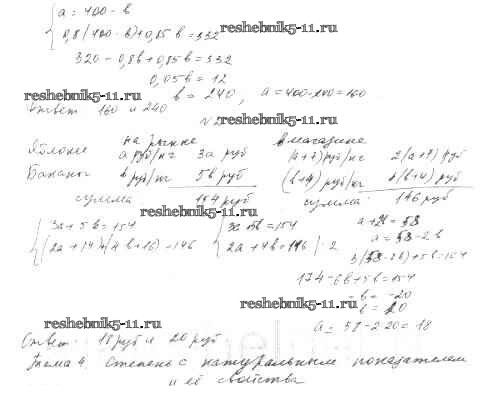 a = 400 - в
reshebnik5-11.ru
0,8(400 - в) + 0,85в = 332
320 - 0,8в + 0,85в = 332
0,05в = 12
reshebnik5-11.ru
в = 240, a = 400-240 = 160
Ответ 160 и 240
N 2
reshebnik5-11.ru
на рынке в магазине
Яблоки a руб/кг 3a руб (a+7) руб/кг 2(a+7) руб
Бананы в руб/кг 5в руб (в+4) руб/кг 4(в+4) руб
сумма 154 руб сумма 146 руб
reshebnik5-11.ru
3a + 5в = 154 3a + 5в = 154 a + 2в = 58
(2a + 14) + (4в + 16) = 146 2a + 4в = 116 | : 2 a = 58 - 2в
3(58 - 2в) + 5в = 154
174 - 6в + 5в = 154
-в = -20
reshebnik5-11.ru
в = 20
reshebnik5-11.ru
a = 58 - 2·20 = 18
Ответ: 18 руб и 20 руб
Тема 4 Степень с натуральным показателем
и её свойства